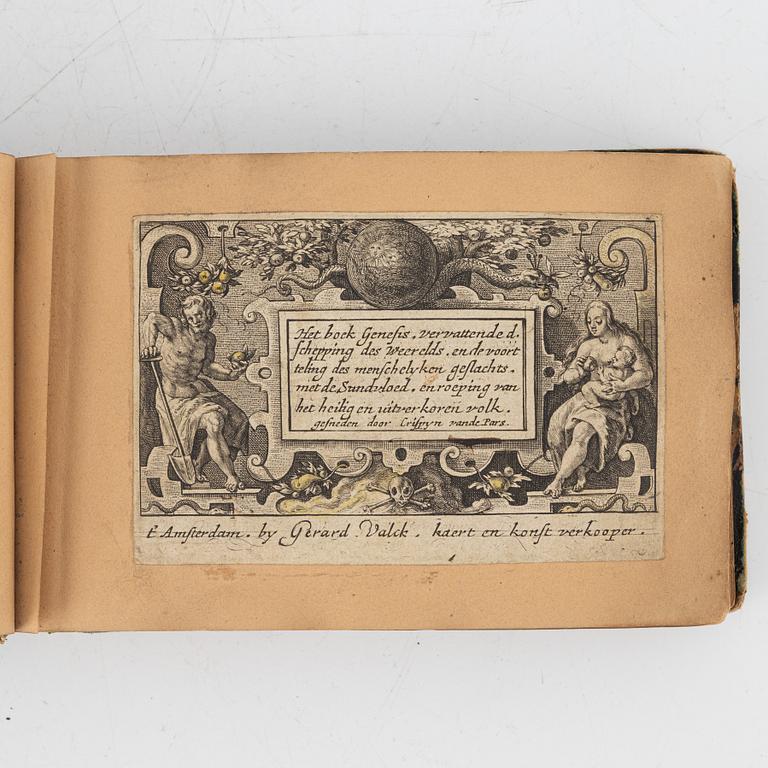 Het boek Genesis. vervattende d.
schepping des Weerelds. en de voort
teling des menschelyken geslachts.
met de Sundvloed. en roeping van
het heilig en uitverkoren volk.
gesneden door Crispyn vande Pars.
t'Amsterdam. by Gerard Valck. kaert en konst verkooper.